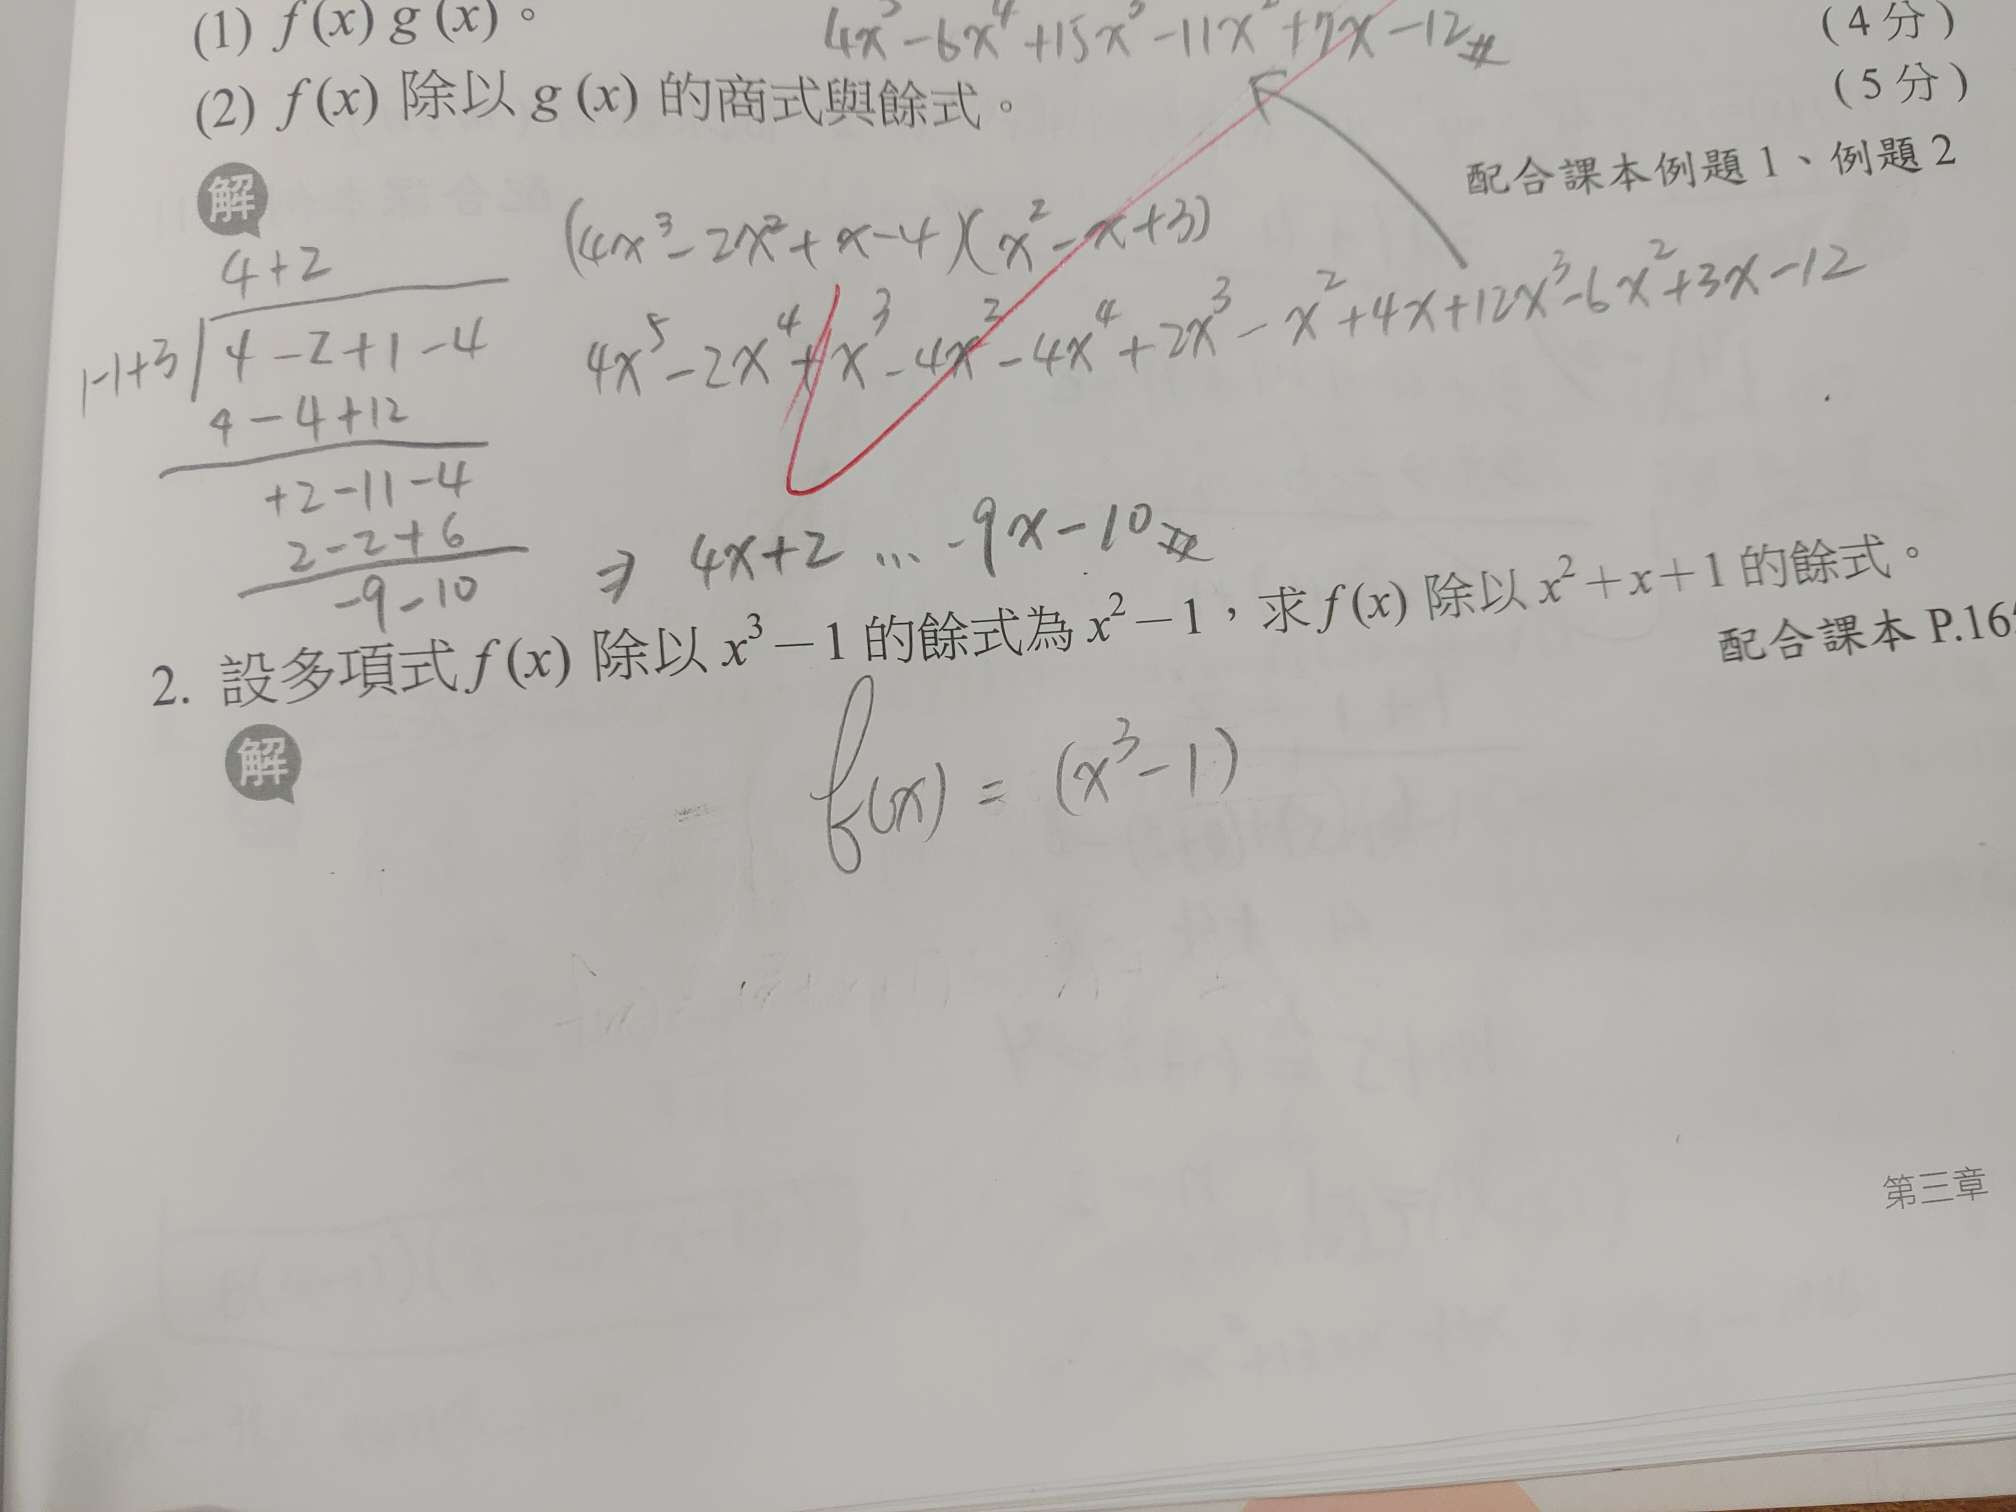 (1) f(x) g(x)。
4x⁵-6x⁴+15x³-11x²+7x-12
(4分)
(2) f(x) 除以 g(x) 的商式與餘式。
(5分)
配合課本例題1、例題2
解
(4x³-2x²+x-4)(x²-x+3)
4x⁵-2x⁴+x³-4x²-4x⁴+2x³-x²+4x+12x³-6x²+3x-12
4+2
1-1+3 4-2+1-4
4-4+12
+2-11-4
2-2+6
-9-10
⇒ 4x+2 … -9x-10
2. 設多項式 f(x) 除以 x³-1 的餘式為 x²-1，求 f(x) 除以 x²+x+1 的餘式。
配合課本 P.16
解
f(x) = (x³-1)
第三章